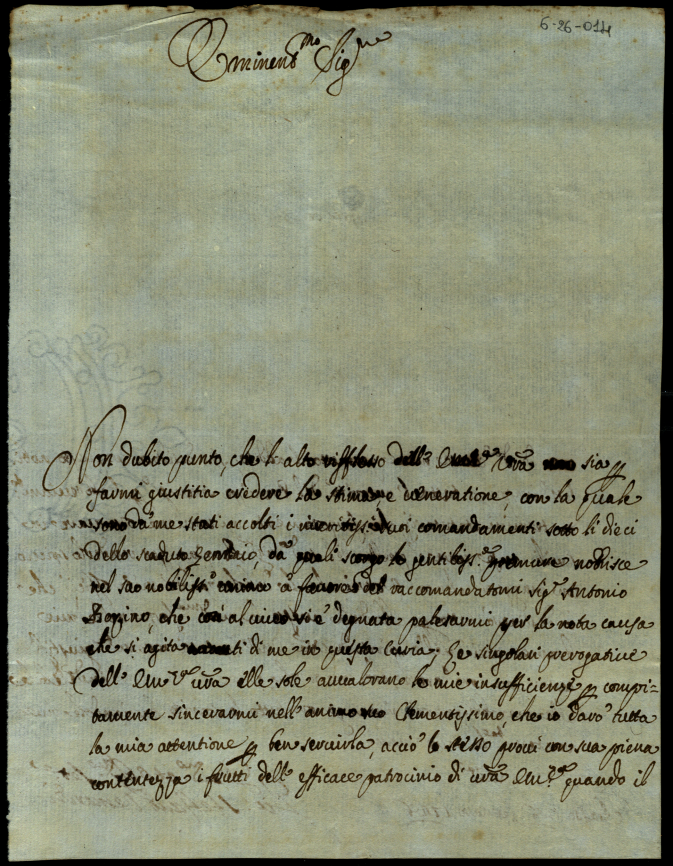 6-26-014
Eminent.mo Sig.re
Non dubito punto, che li alto rifflesso dell' Em.a V.ra sia p
farmi giustitia credere la stima e veneratione, con la quale
sono da me stati accolti i suoi comandamenti sotto li dieci
dello scaduto Zennaio, da quali scorgo le gentiliss.e premure
nel suo nobiliss.o animo à favore del raccomandatomi Sig.r Antonio
che si è degnata palesarmi per la nota causa
che si agita avanti di me in questa Curia; Le singolari prerogative
dell' Em.a V.ra elle sole avvalorano le mie insufficienze p compi-
tamente sincerarmi nell' animo suo Clementissimo, che io darò tutta
la mia attentione p ben servirla, acciò lo stesso provi con sua piena
contentezza i frutti dell' efficace patrocinio di V.ra Em.za quando il